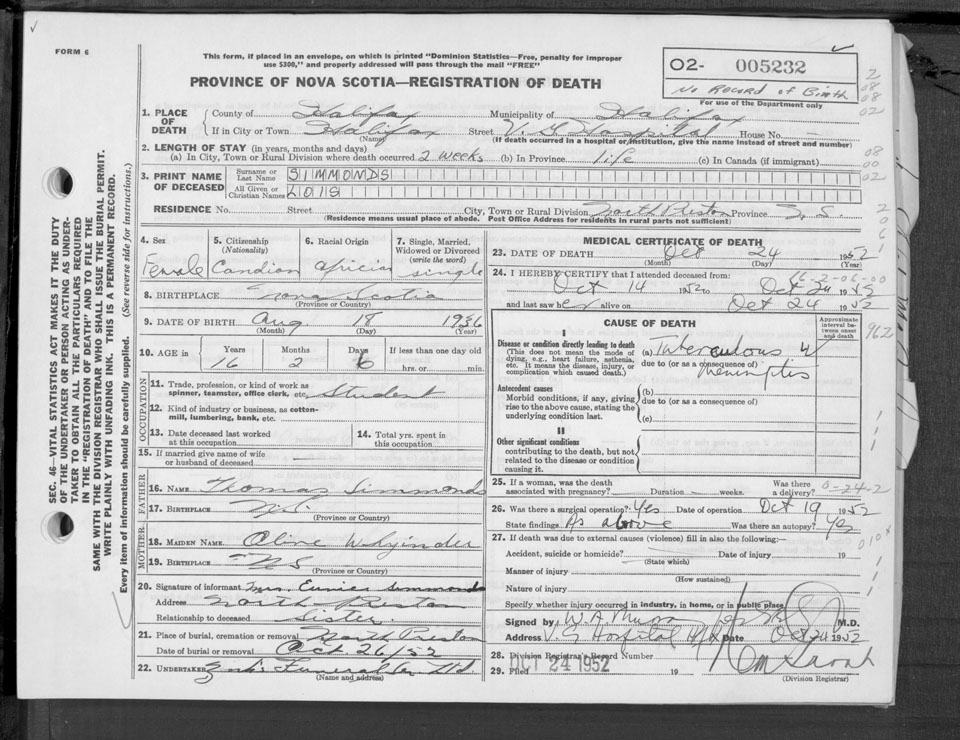 FORM 6
This form, if placed in an envelope, on which is printed "Dominion Statistics—Free, penalty for improper
use $300," and properly addressed will pass through the mail "FREE"
PROVINCE OF NOVA SCOTIA—REGISTRATION OF DEATH
O2- 005232
No Record of Birth
For use of the Department only
SEC. 46—VITAL STATISTICS ACT MAKES IT THE DUTY
OF THE UNDERTAKER OR PERSON ACTING AS UNDER-
TAKER TO OBTAIN ALL THE PARTICULARS REQUIRED
IN THE "REGISTRATION OF DEATH" AND TO FILE THE
SAME WITH THE DIVISION REGISTRAR WHO SHALL ISSUE THE BURIAL PERMIT.
WRITE PLAINLY WITH UNFADING INK. THIS IS A PERMANENT RECORD.
Every item of information should be carefully supplied. (See reverse side for instructions.)
1. PLACE OF DEATH
County of Halifax Municipality of Halifax
If in City or Town Halifax Street V. G. Hospital House No.
(Name) (If death occurred in a hospital or institution, give the name instead of street and number)
2. LENGTH OF STAY (in years, months and days)
(a) In City, Town or Rural Division where death occurred 2 weeks (b) In Province life (c) In Canada (if immigrant)
3. PRINT NAME OF DECEASED
Surname or Last Name SIMMONDS
All Given or Christian Names LOIS
RESIDENCE No. Street City, Town or Rural Division North Preston Province N. S.
(Residence means usual place of abode. Post Office Address for residents in rural parts not sufficient)
4. Sex Female
5. Citizenship (Nationality) Candian
6. Racial Origin african
7. Single, Married, Widowed or Divorced (write the word) single
8. BIRTHPLACE Nova Scotia
(Province or Country)
9. DATE OF BIRTH Aug 18 1936
(Month) (Day) (Year)
10. AGE in Years Months Days If less than one day old
16 2 6 hrs. or min.
OCCUPATION
11. Trade, profession, or kind of work as spinner, teamster, office clerk, etc. Student
12. Kind of industry or business, as cotton-mill, lumbering, bank, etc.
13. Date deceased last worked at this occupation
14. Total yrs. spent in this occupation
15. If married give name of wife or husband of deceased
FATHER
16. NAME Thomas Simmonds
17. BIRTHPLACE N.S.
(Province or Country)
MOTHER
18. MAIDEN NAME Olive
19. BIRTHPLACE N S
(Province or Country)
20. Signature of informant Mrs. Eunice Simmonds
Address North Preston
Relationship to deceased sister
21. Place of burial, cremation or removal North Preston
Date of burial or removal Oct 26/52
22. UNDERTAKER Ltd.
(Name and address)
MEDICAL CERTIFICATE OF DEATH
23. DATE OF DEATH Oct 24 1952
(Month) (Day) (Year)
24. I HEREBY CERTIFY that I attended deceased from:
Oct 14 1952 to Oct 24 1952
and last saw her alive on Oct 24 1952
CAUSE OF DEATH
Approximate interval between onset and death
I
Disease or condition directly leading to death
(This does not mean the mode of dying, e.g., heart failure, asthenia, etc. It means the disease, injury, or complication which caused death.)
(a) Tuberculous
due to (or as a consequence of)
Antecedent causes
Morbid conditions, if any, giving rise to the above cause, stating the underlying condition last.
(b)
due to (or as a consequence of)
(c)
II
Other significant conditions
contributing to the death, but not related to the disease or condition causing it.
25. If a woman, was the death associated with pregnancy? Duration weeks. Was there a delivery?
26. Was there a surgical operation? Yes Date of operation Oct 19 1952
State findings As above Was there an autopsy? Yes
27. If death was due to external causes (violence) fill in also the following:—
Accident, suicide or homicide? Date of injury 19
(State which)
Manner of injury
(How sustained)
Nature of injury
Specify whether injury occurred in industry, in home, or in public place
Signed by W. A. M.D.
Address V. G Hospital Date Oct 24 1952
28. Division Registrar's Record Number
29. Filed OCT 24 1952 19
(Division Registrar)